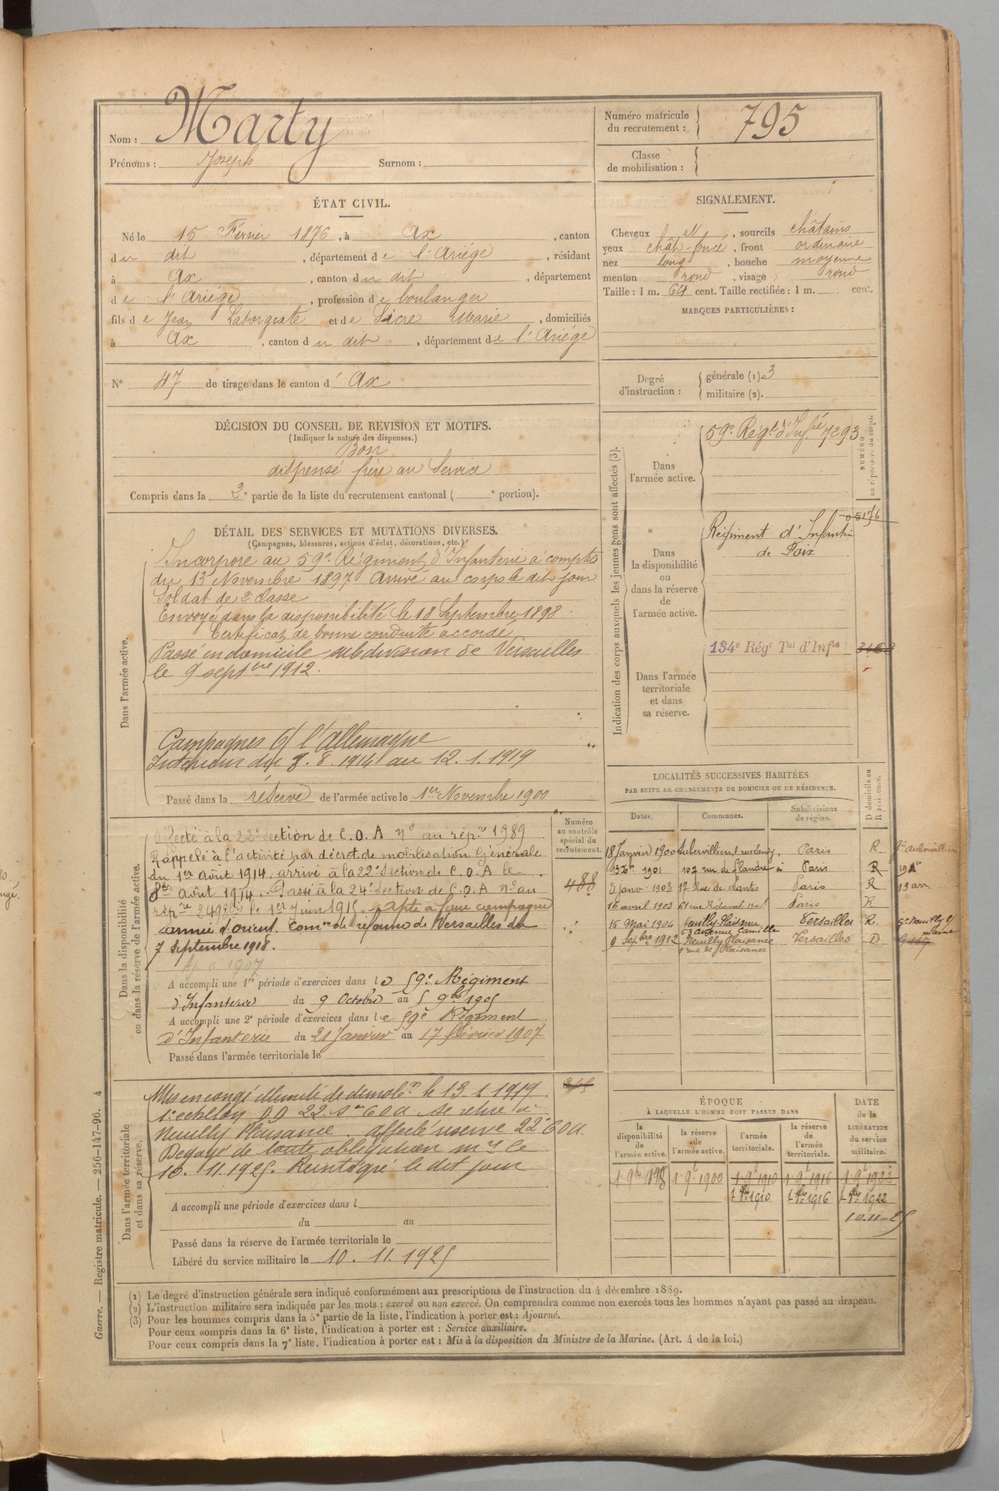 Nom : Marty
Prénoms : Joseph Surnom :
Numéro matricule du recrutement : 795
Classe de mobilisation :
ÉTAT CIVIL.
Né le 15 Février 1876, à Ax, canton
du dit, département de l'Ariège, résidant
à Ax, canton du dit, département
de l'Ariège, profession de boulanger
fils de Jean Laborgeate et de Sicre Marie, domiciliés
à Ax, canton du dit, département de l'Ariège
N° 47 de tirage dans le canton d'Ax
SIGNALEMENT.
Cheveux N, sourcils châtains
yeux chât. foncé, front ordinaire
nez long, bouche moyenne
menton rond, visage rond
Taille : 1 m. 64 cent. Taille rectifiée : 1 m. cent.
MARQUES PARTICULIÈRES :
Degré d'instruction : générale (1). 3
militaire (2).
DÉCISION DU CONSEIL DE REVISION ET MOTIFS.
(Indiquer la nature des dispenses.)
Bon
dispensé frère au Service
Compris dans la 2e partie de la liste du recrutement cantonal ( e portion).
DÉTAIL DES SERVICES ET MUTATIONS DIVERSES.
(Campagnes, blessures, actions d'éclat, décorations, etc.)
Dans l'armée active.
Incorporé au 59e Régiment d'Infanterie à compter
du 13 Novembre 1897 Arrivé au corps le dit jour
Soldat de 2e classe
Envoyé dans la disponibilité le 18 Septembre 1898.
Certificat de bonne conduite accordé
Passé en domicile subdivision de Versailles
le 9 septbre 1912.
Campagnes c/ l'Allemagne
Intérieur du 3.8.1914 au 12.1.1919
Passé dans la réserve de l'armée active le 1er Novembre 1900
Indication des corps auxquels les jeunes gens sont affectés (3).
NUMÉRO au répertoire du corps.
Dans l'armée active.
59e Régt d'Infrie 7293
Dans la disponibilité ou dans la réserve de l'armée active.
Régiment d'Infanterie
de Foix
Dans l'armée territoriale et dans sa réserve.
134e Régt Tal d'Infie
LOCALITÉS SUCCESSIVES HABITÉES
PAR SUITE DE CHANGEMENTS DE DOMICILE OU DE RÉSIDENCE.
Dates. Communes. Subdivisions de région. D domicile ou R résidence.
18 Janvier 1900 Aubervilliers Paris R
1901 102 rue de Flandre Paris R
3 janv 1903 17 Rue de Nantes Paris R
16 avril 1903 Paris R
15 Mai 1904 Neuilly-Plaisance Versailles R.
3 avenue Camille
9 Septbre 1912 Neuilly Plaisance Versailles D
Numéro au contrôle spécial du recrutement.
488
Dans la disponibilité ou dans la réserve de l'armée active.
Affecté à la 22e Section de C.O.A n° au rép. 1989
Rappelé à l'activité par décret de mobilisation Générale
du 1er Août 1914. arrivé à la 22e Section de C.O.A le
août 1914. Passé à la 24e Section de C.O.A n° au
rép. le 1er Juin 1915. apte à faire campagne
armée d'orient. Comon de réforme de Versailles du
7 Septembre 1918.
A accompli une 1re période d'exercices dans le 59e Régiment
d'Infanterie du 9 Octobre au 5 9bre 1905
A accompli une 2e période d'exercices dans le 59e Régiment
d'Infanterie du 21 Janvier au 17 février 1907
Passé dans l'armée territoriale le
Dans l'armée territoriale et dans sa réserve.
Mis en congé illimité de démobon le 13.1.1919
1e échelon 22 Son COA se retire à
Neuilly Plaisance affecté réserve 22e COA.
Dégagé de toute obligation mre le
10.11.1925.
A accompli une période d'exercices dans l
du au
Passé dans la réserve de l'armée territoriale le
Libéré du service militaire le 10.11.1925
ÉPOQUE
À LAQUELLE L'HOMME DOIT PASSER DANS
la disponibilité de l'armée active. la réserve de l'armée active. l'armée territoriale. la réserve de l'armée territoriale. DATE de la LIBÉRATION du service militaire.
1 9bre 1898 1 9e 1900 1 9e 1910 1 9e 1916 1 9e 1923
1 8bre 1910 1 8bre 1916 1 8bre 1922
10-11-25
(1) Le degré d'instruction générale sera indiqué conformément aux prescriptions de l'instruction du 4 décembre 1889.
(2) L'instruction militaire sera indiquée par les mots : exercé ou non exercé. On comprendra comme non exercés tous les hommes n'ayant pas passé au drapeau.
(3) Pour les hommes compris dans la 5e partie de la liste, l'indication à porter est : Ajourné.
Pour ceux compris dans la 6e liste, l'indication à porter est : Service auxiliaire.
Pour ceux compris dans la 7e liste, l'indication à porter est : Mis à la disposition du Ministre de la Marine. (Art. 4 de la loi.)
Guerre. — Registre matricule. — 256-147-96. 4